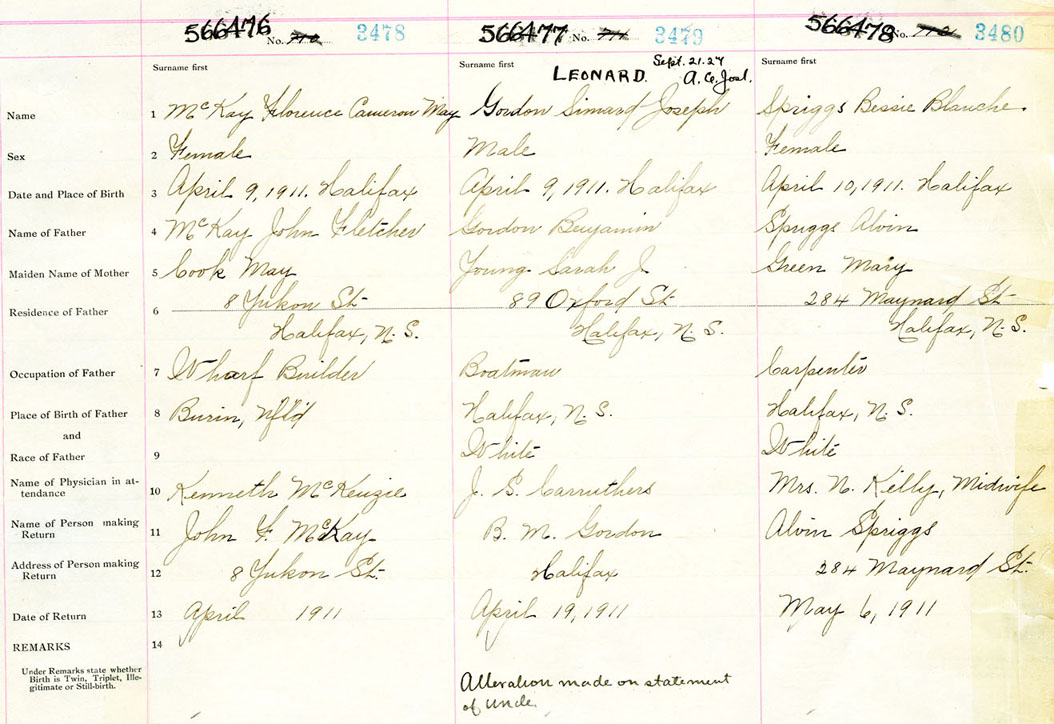 566476 No. 3478 566477 No. 3479 566478 No. 3480
Surname first Surname first LEONARD. Sept. 21.27 Surname first
Name 1 McKay Florence Cameron May Gordon Simard Joseph Spriggs Bessie Blanche.
Sex 2 Female Male Female
Date and Place of Birth 3 April 9, 1911. Halifax April 9, 1911. Halifax April 10, 1911. Halifax
Name of Father 4 McKay John Fletcher Gordon Benjamin Spriggs Alvin
Maiden Name of Mother 5 Cook May Young Sarah J. Green Mary
8 Yukon St. 89 Oxford St. 284 Maynard St.
Residence of Father 6
Halifax, N.S. Halifax, N.S. Halifax, N.S.
Occupation of Father 7 Wharf Builder Boatman Carpenter
Place of Birth of Father 8 Burin, Nfld Halifax, N.S. Halifax, N.S.
and
Race of Father 9 White White
Name of Physician in at-
tendance 10 Kenneth McKenzie J. S. Carruthers Mrs. N. Kelly, Midwife
Name of Person making
Return 11 John F. McKay B. M. Gordon Alvin Spriggs
Address of Person making
Return 12 8 Yukon St. Halifax 284 Maynard St.
Date of Return 13 April 1911 April 19, 1911 May 6, 1911
REMARKS 14
Under Remarks state whether
Birth is Twin, Triplet, Ille-
gitimate or Still-birth.
Alteration made on statement
of uncle.